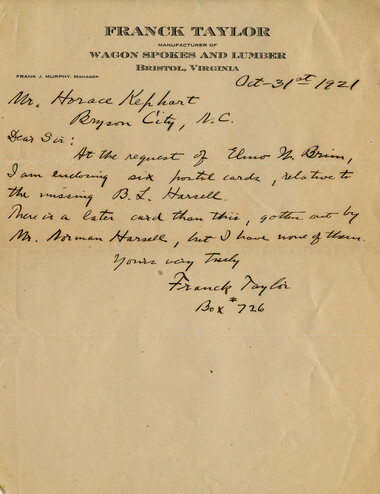 FRANCK TAYLOR
MANUFACTURER OF
WAGON SPOKES AND LUMBER
BRISTOL, VIRGINIA
FRANK J. MURPHY, MANAGER
Oct-31st 1921
Mr. Horace Kephart
Bryson City, N.C.
Dear Sir:
At the request of Elmo N. Brim,
I am enclosing six postal cards, relative to
the missing B. L. Harsell.
There is a later card than this, gotten out by
Mr. Norman Harsell, but I have none of them.
Yours very truly
Franck Taylor
Box #726